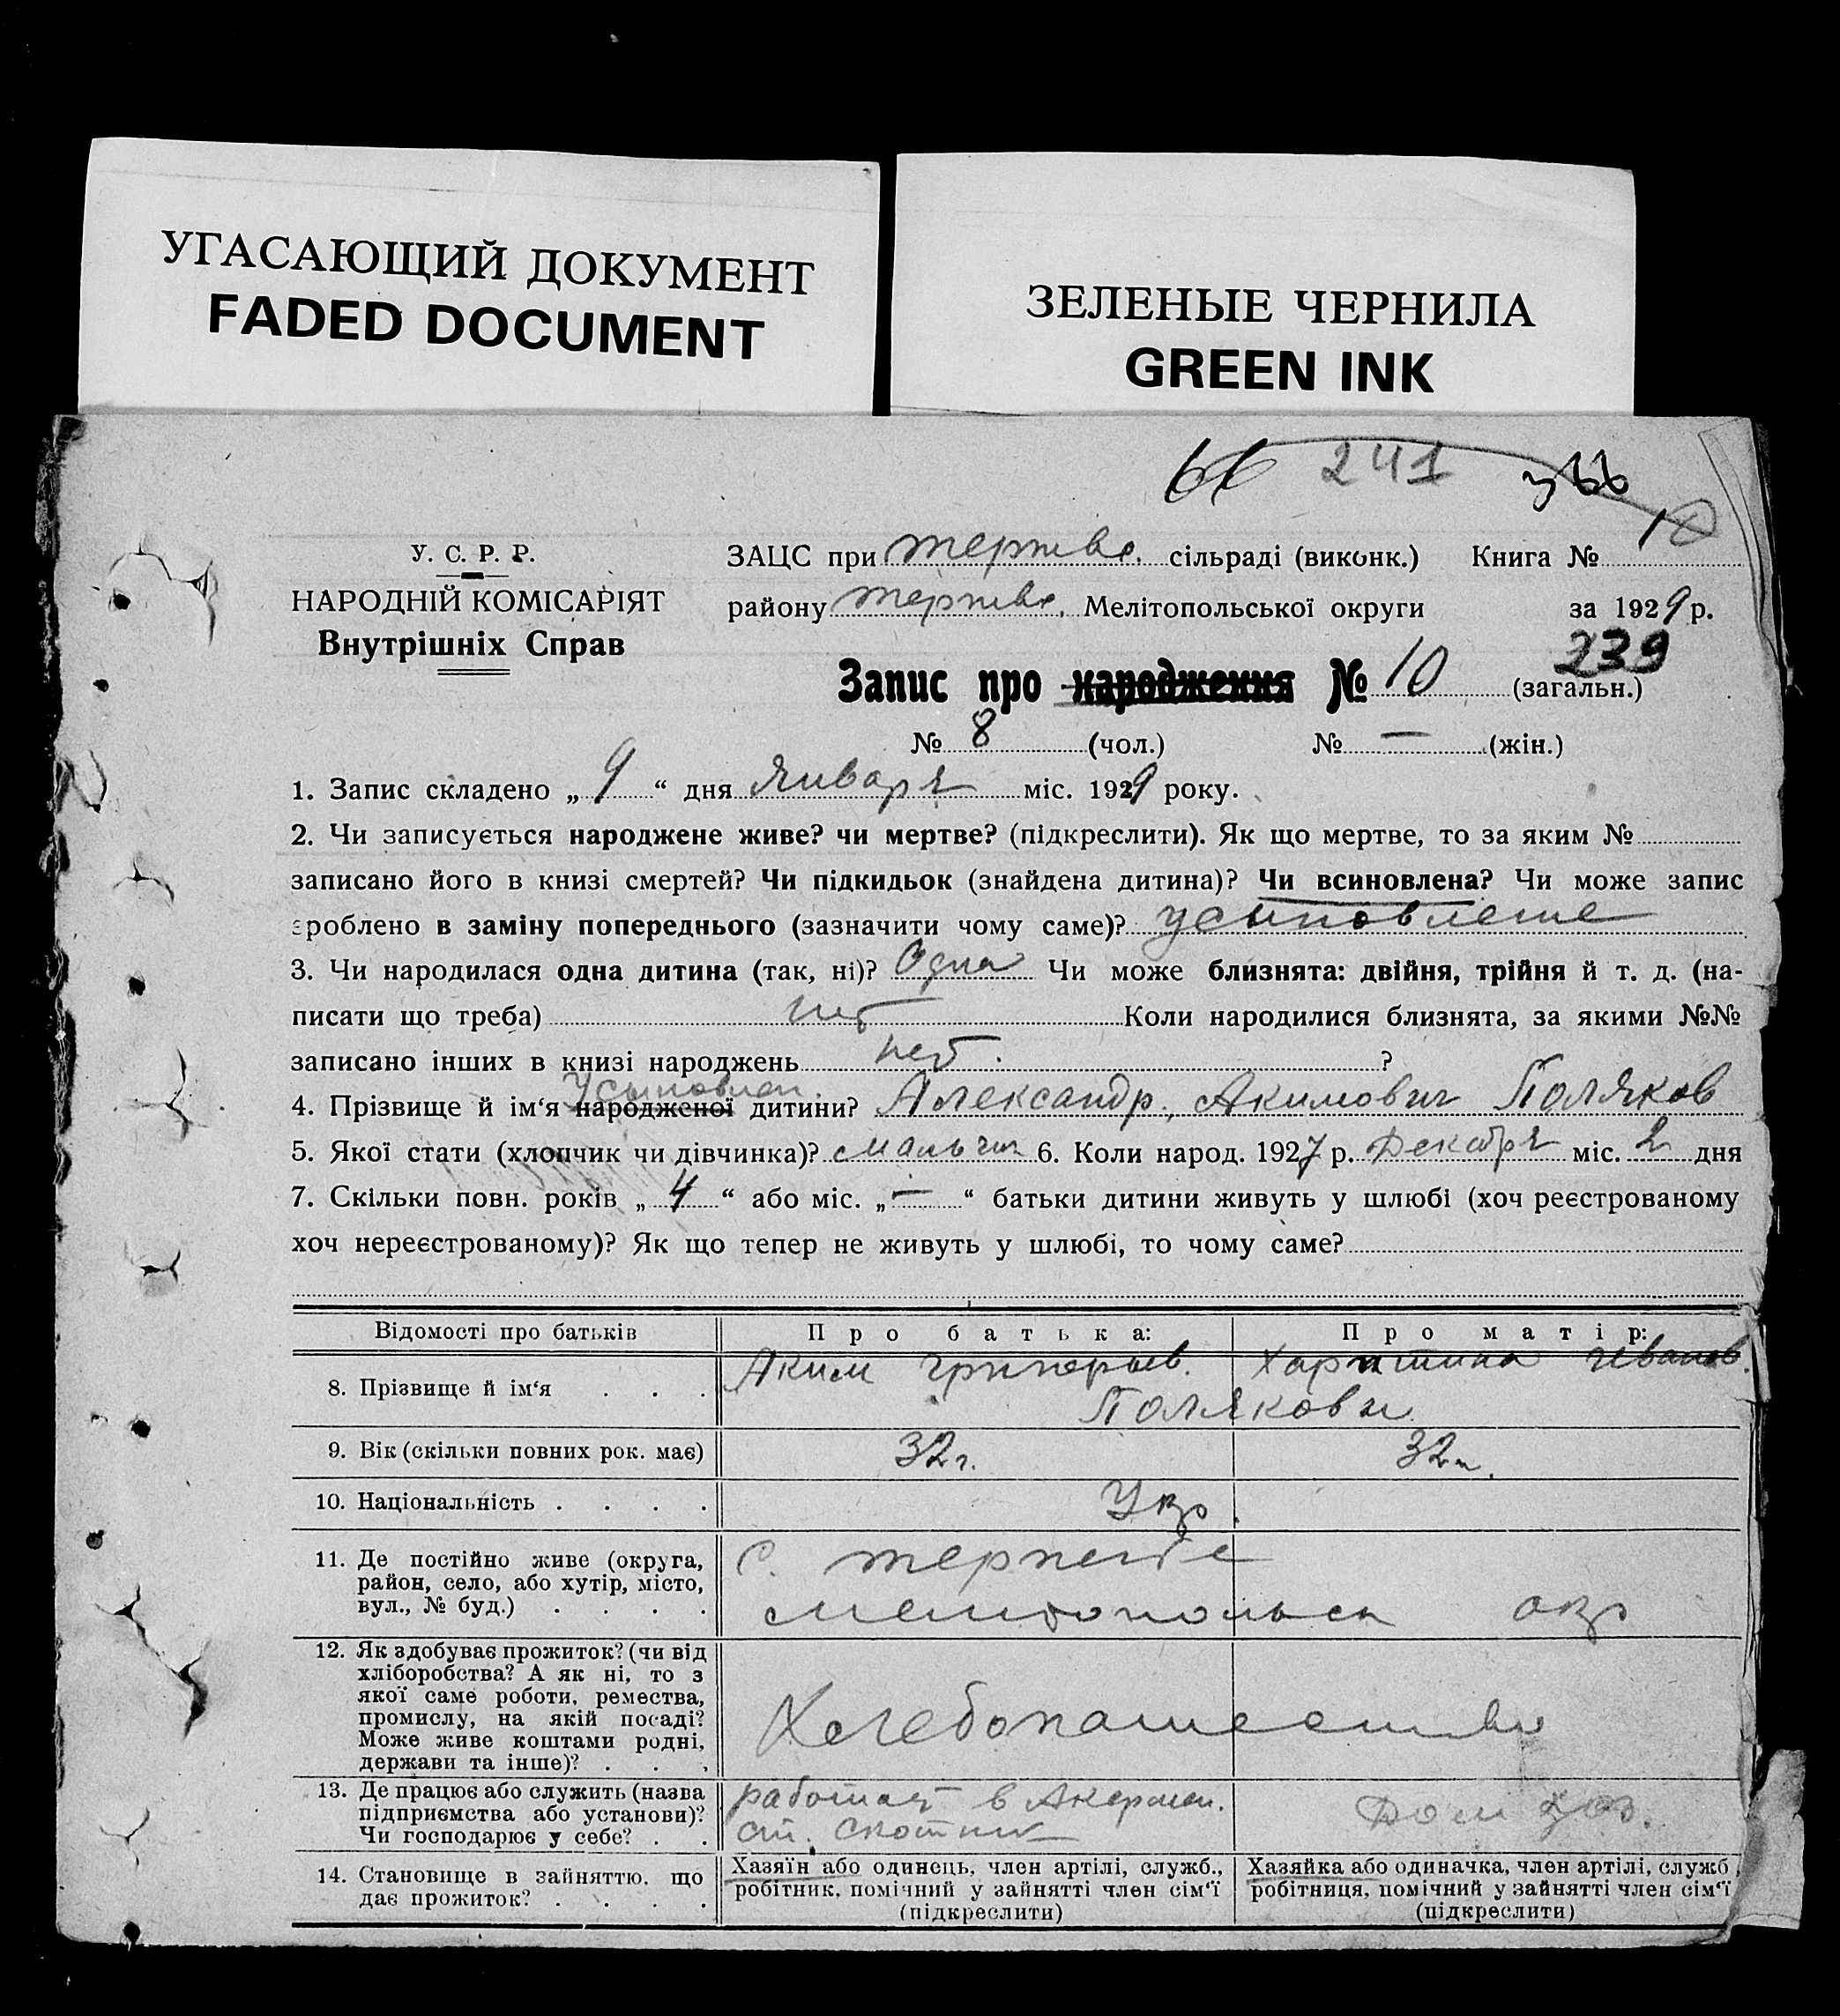 УГАСАЮЩИЙ ДОКУМЕНТ
FADED DOCUMENT
ЗЕЛЕНЫЕ ЧЕРНИЛА
GREEN INK
66 241 66
У. С. Р. Р.
НАРОДНІЙ КОМІСАРІЯТ
Внутрішніх Справ
ЗАЦС при Терпевс. сільраді (виконк.) Книга №
району Терпевс. Мелітопольської округи за 1929 р.
239
Запис про народження № 10 (загальн.)
№ 8 (чол.) № — (жін.)
1. Запис складено „ 9 “ дня Января міс. 1929 року.
2. Чи записується народжене живе? чи мертве? (підкреслити). Як що мертве, то за яким №
записано його в книзі смертей? Чи підкидьок (знайдена дитина)? Чи всиновлена? Чи може запис
зроблено в заміну попереднього (зазначити чому саме)? усыновление
3. Чи народилася одна дитина (так, ні)? Одна Чи може близнята: двійня, трійня й т. д. (на-
писати що треба) нет Коли народилися близнята, за якими №№
записано інших в книзі народжень нет. ?
Усыновлен.
4. Прізвище й ім‘я народженої дитини? Александр, Акимович Поляков
5. Якої стати (хлопчик чи дівчинка)? мальчик 6. Коли народ. 1927 р. Декабря міс. 2 дня
7. Скільки повн. років „ 4 “ або міс. „ — “ батьки дитини живуть у шлюбі (хоч реєстрованому
хоч нереєстрованому)? Як що тепер не живуть у шлюбі, то чому саме?
Відомості про батьків Про батька: Про матір:
Аким Григорьев. Харитина Иванов.
8. Прізвище й ім‘я . . .
Поляковы
9. Вік (скільки повних рок. має) 32 г. 32 г.
10. Національність . . . . Укр.
11. Де постійно живе (округа,
район, село, або хутір, місто,
вул., № буд.) . . . .
с. Терпение
Мелитопольск окр
12. Як здобуває прожиток? (чи від
хліборобства? А як ні, то з
якої саме роботи, ремества,
промислу, на якій посаді?
Може живе коштами родні,
держави та інше)? . . .
Хлебопашество
13. Де працює або служить (назва
підприємства або установи)?
Чи господарює у себе? . .
работает в Акермен.
ст. Скотник
Дом хоз.
14. Становище в зайняттю, що
дає прожиток? . . . .
Хазяїн або одинець, член артілі, служб.,
робітник, помічний у зайнятті член сім‘ї
(підкреслити)
Хазяйка або одиначка, член артілі, служб.,
робітниця, помічний у зайнятті член сім‘ї
(підкреслити)